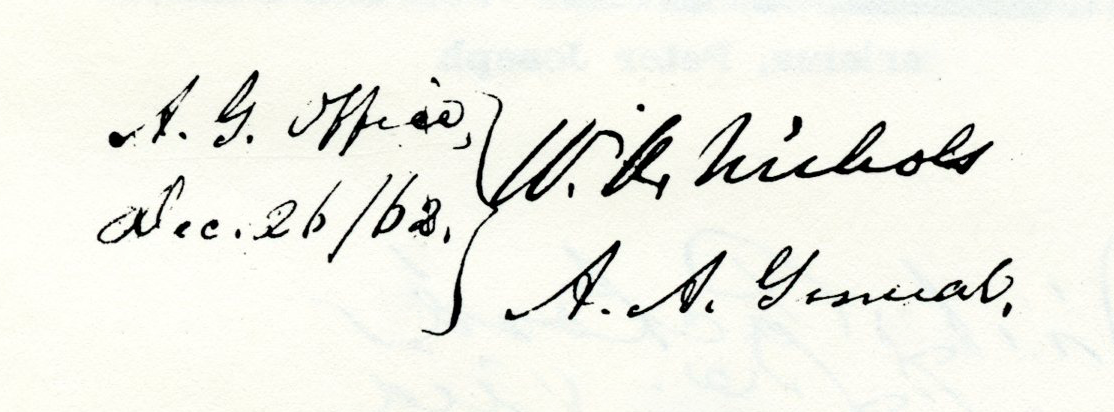 A. G. Office,
Dec. 26/62.
W. A. Nichols
A. A. General.